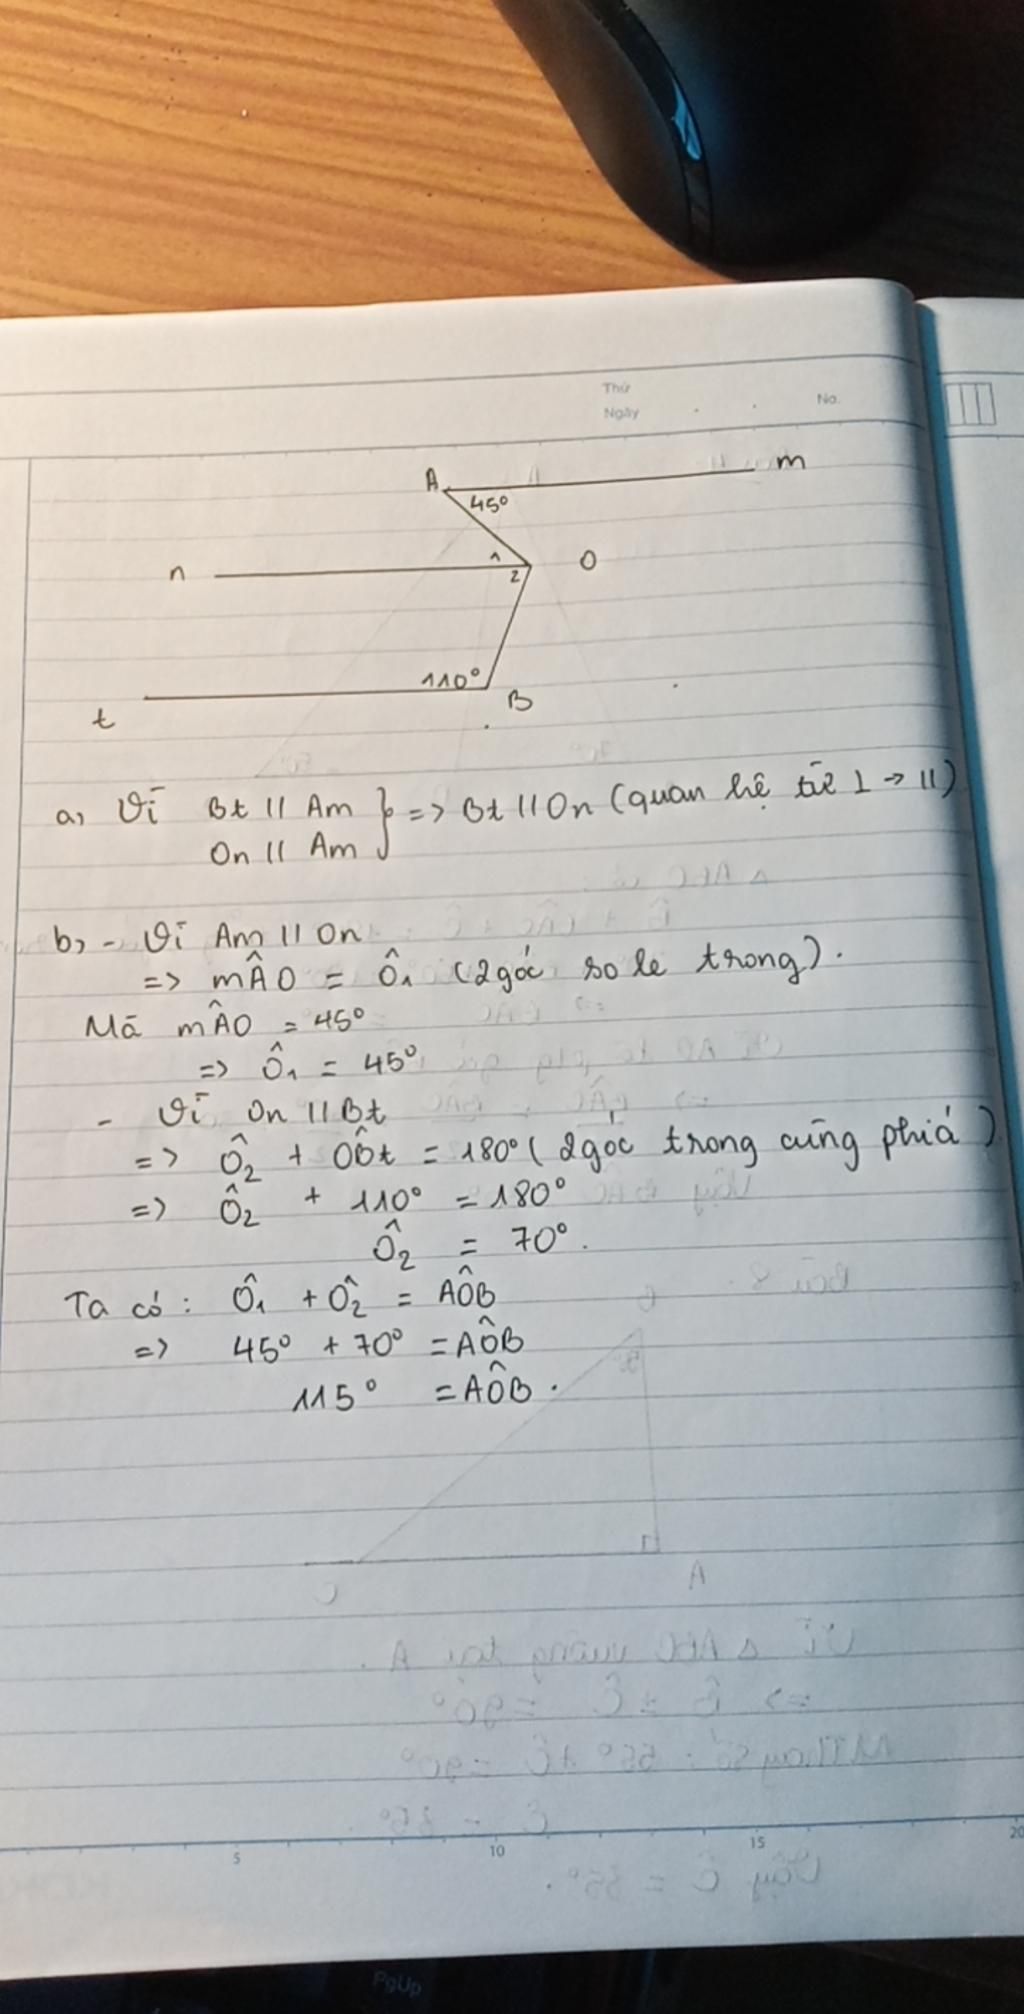 Thứ
Ngày . . No.
A m
45°
n 1 O
2
110°
t B
a, Vì Bt || Am } => Bt || On (quan hệ từ ⊥ → ||)
On || Am
b, - Vì Am || On
=> mÂO = Ô₁ (2 góc so le trong).
Mà mÂO = 45°
=> Ô₁ = 45°
- Vì On || Bt
=> Ô₂ + OB̂t = 180° (2 góc trong cùng phía)
=> Ô₂ + 110° = 180°
Ô₂ = 70°.
Ta có: Ô₁ + Ô₂ = AÔB
=> 45° + 70° = AÔB
115° = AÔB.
5 10 15 20
PgUp